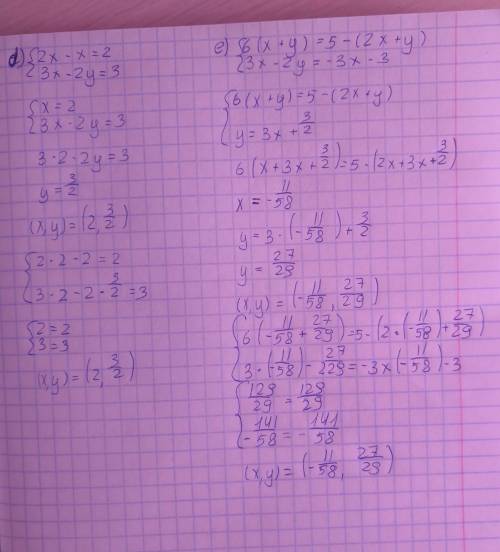 d) {2x - x = 2
{3x - 2y = 3
{x = 2
{3x - 2y = 3
3 · 2 - 2y = 3
y = 3/2
(x, y) = (2, 3/2)
{2 · 2 - 2 = 2
{3 · 2 - 2 · 3/2 = 3
{2 = 2
{3 = 3
(x, y) = (2, 3/2)
e) {6(x + y) = 5 - (2x + y)
{3x - 2y = -3x - 3
{6(x + y) = 5 - (2x + y)
{y = 3x + 3/2
6(x + 3x + 3/2) = 5 - (2x + 3x + 3/2)
x = - 11/58
y = 3 · (- 11/58) + 3/2
y = 27/29
(x, y) = (- 11/58, 27/29)
{6(- 11/58 + 27/29) = 5 - (2 · (- 11/58) + 27/29)
{3 · (- 11/58) - 27/229 = -3 x (- 11/58) - 3
{129/29 = 129/29
{- 141/58 = - 141/58
(x, y) = (- 11/58, 27/29)